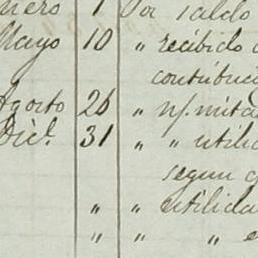 nero 1 Por saldo
Mayo 10 " recibido
contribuc
Agosto 26 " n/. mita
Dic.e 31 " " utilid
segun
" " utilida
" " "